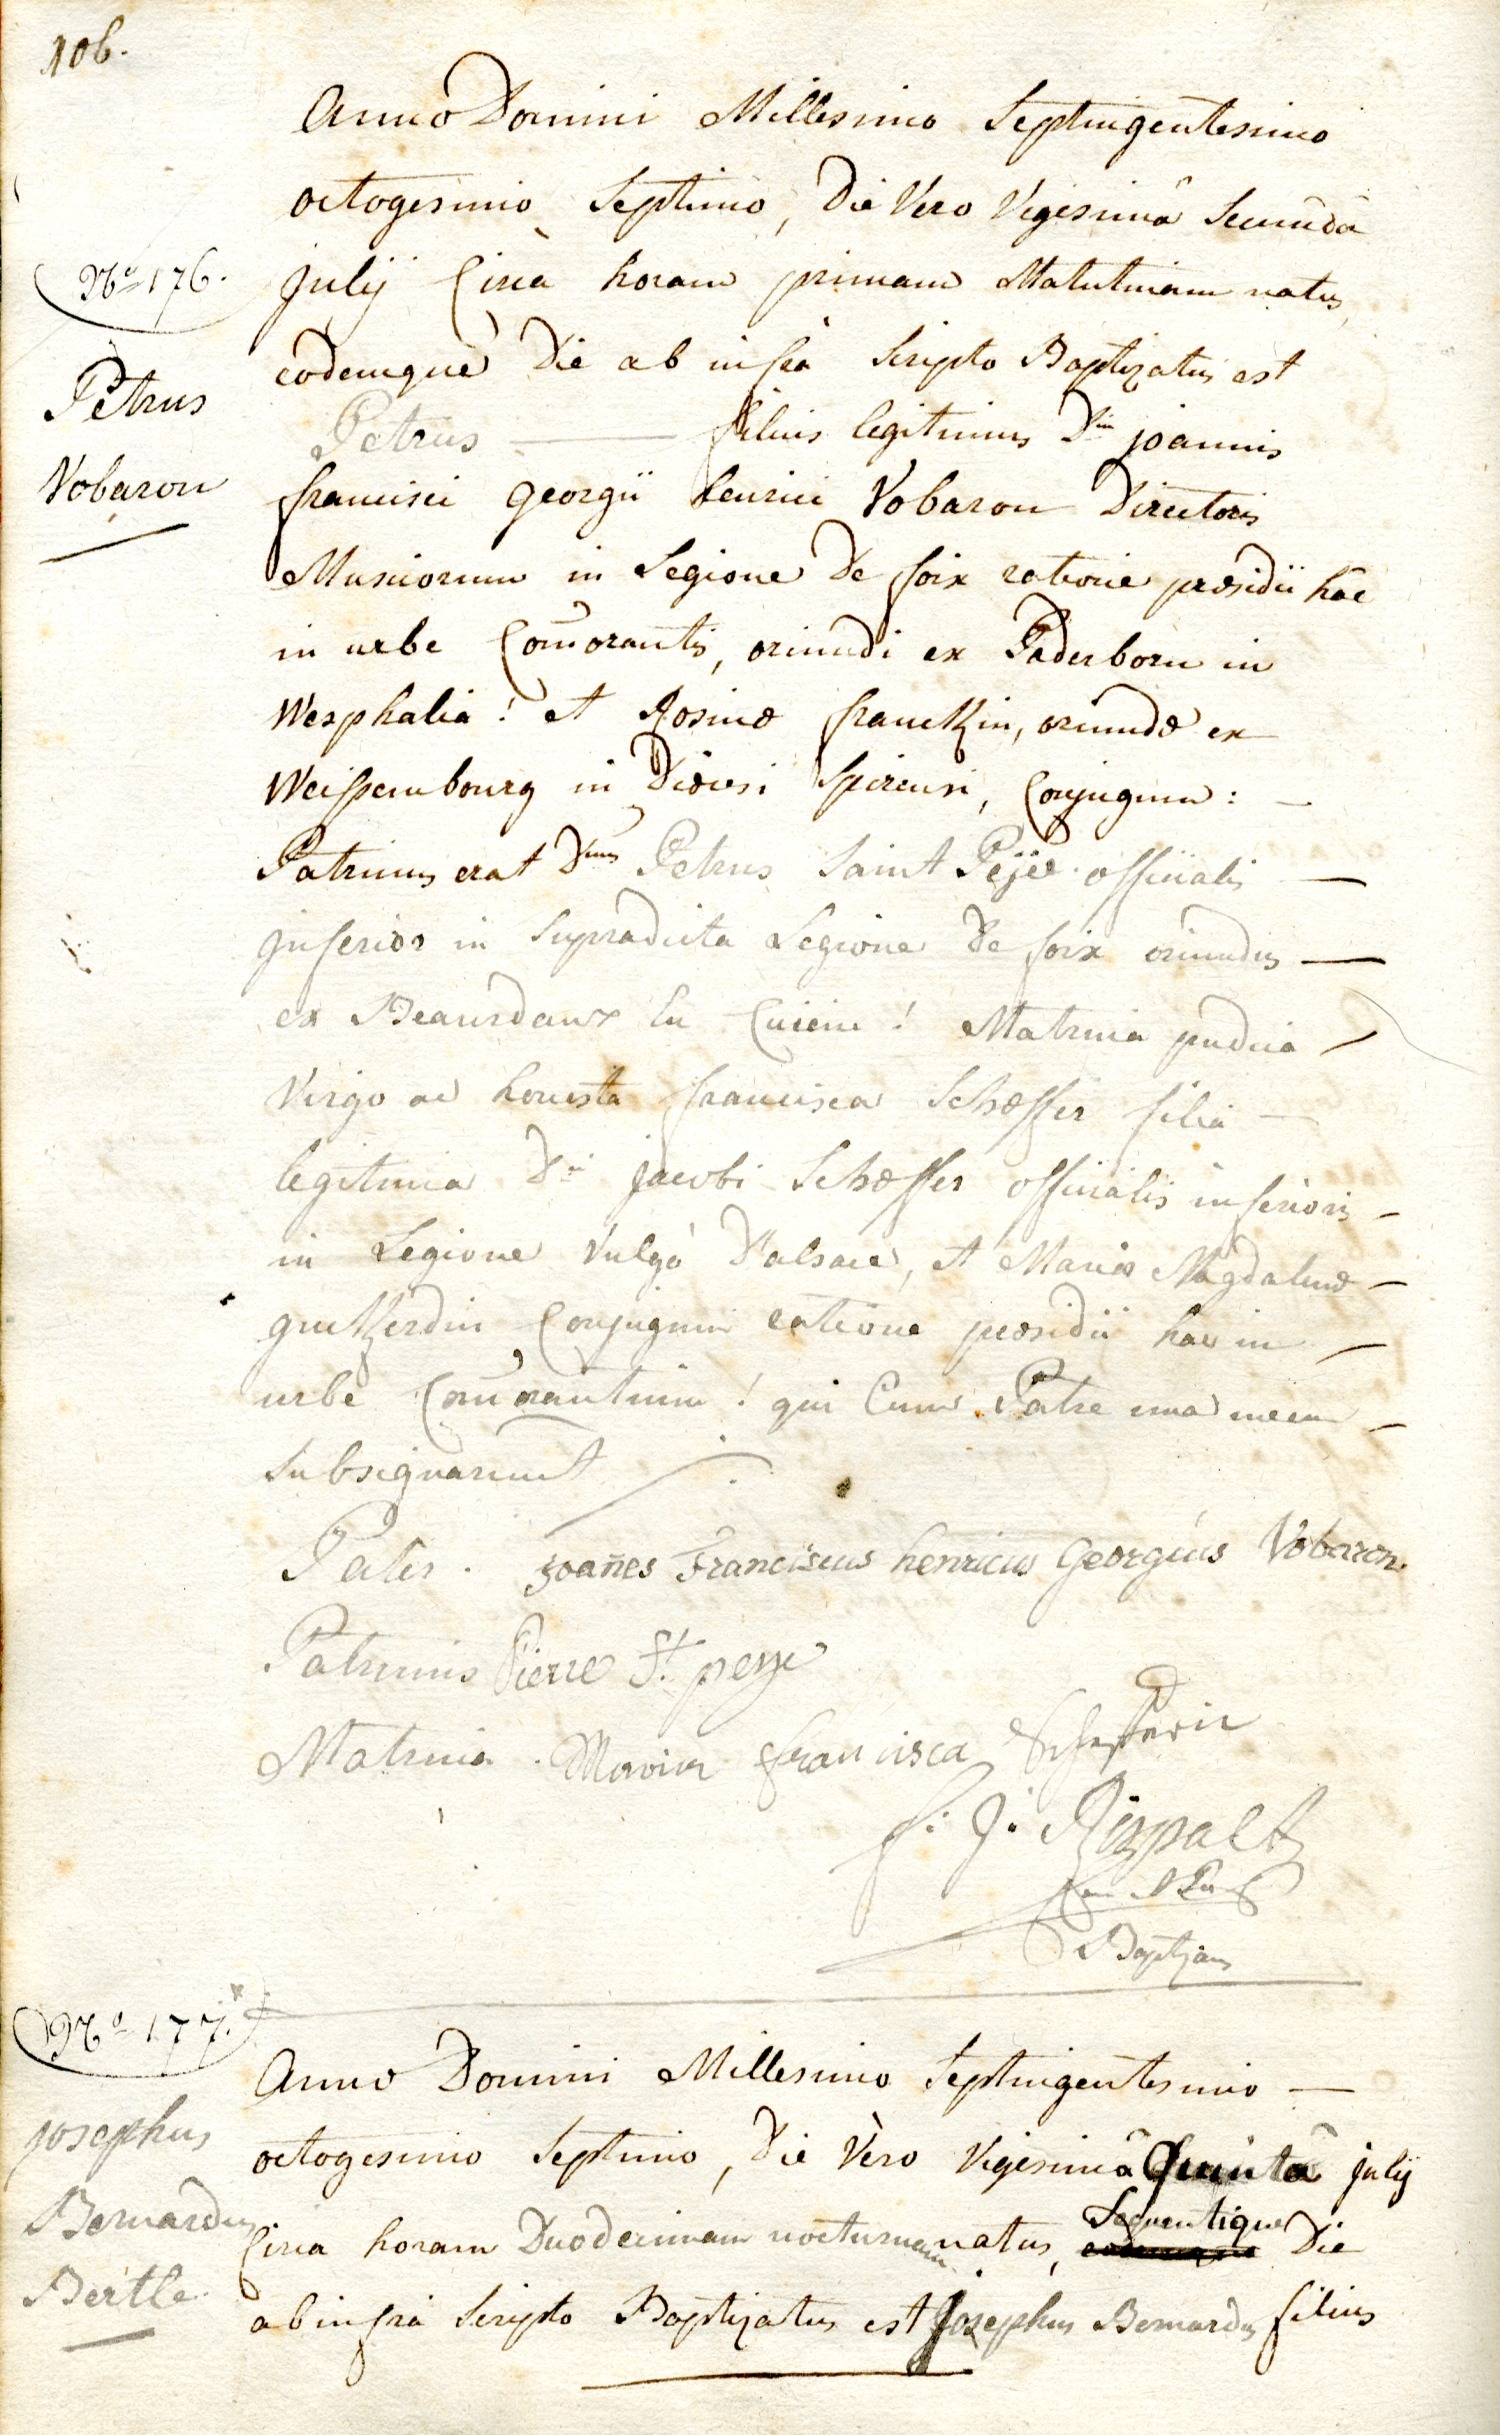 106.
Anno Domini Millesimo Septingentesimo
octogesimo Septimo, Die Vero Vigesimâ Secundâ
No 176.
julij Circà horam primam Matutinam natus,
eodemque Die ab infrà Scripto Baptizatus est
Petrus
Petrus — filius legitimus Dni joannis
Vobaron
francisci georgii henrici Vobaron Directoris
Musicorum in Legione De foix ratione præsidii hâc
in urbe Com̄orantis, oriundi ex Paderborn in
Wesphalia! et Rosinæ franckin, oriundæ ex
Weissembourg in Diœcesi Spirensi, Conjugum: —
Patrinus erat Dnus Petrus Saint Pejée officialis —
inferior in Supradicta Legione De foix oriundus —
ex Beaurdaux En Cuiene! Matrina pudica
Virgo ac honesta francisca Schæffer filia —
legitima Dni jacobi Schæffer officialis inferioris —
in Legione Vulgò D'alsace, et Mariæ Magdalenæ —
Conjugum ratione præsidii hac in —
urbe Com̄orantium! qui Cum Patre una mecum —
Subsignarunt
Pater. Joan̄es Franciscus henricus Georgius Vobaron.
Patrinus Pierre St. peye
Matrina. Maria francisca Schefferin
f: J: Rispalt
Baptizans
No 177.
Anno Domini Millesimo Septingentesimo —
josephus
octogesimo Septimo, Die Vèro Vigesimâ Quintâ julij
Bernardus
Sequentique
Circa horam Duodecimam nocturnam natus, eodemque Die
Bertle.
ab infrà Scripto Baptizatus est Josephus Bernardus filius